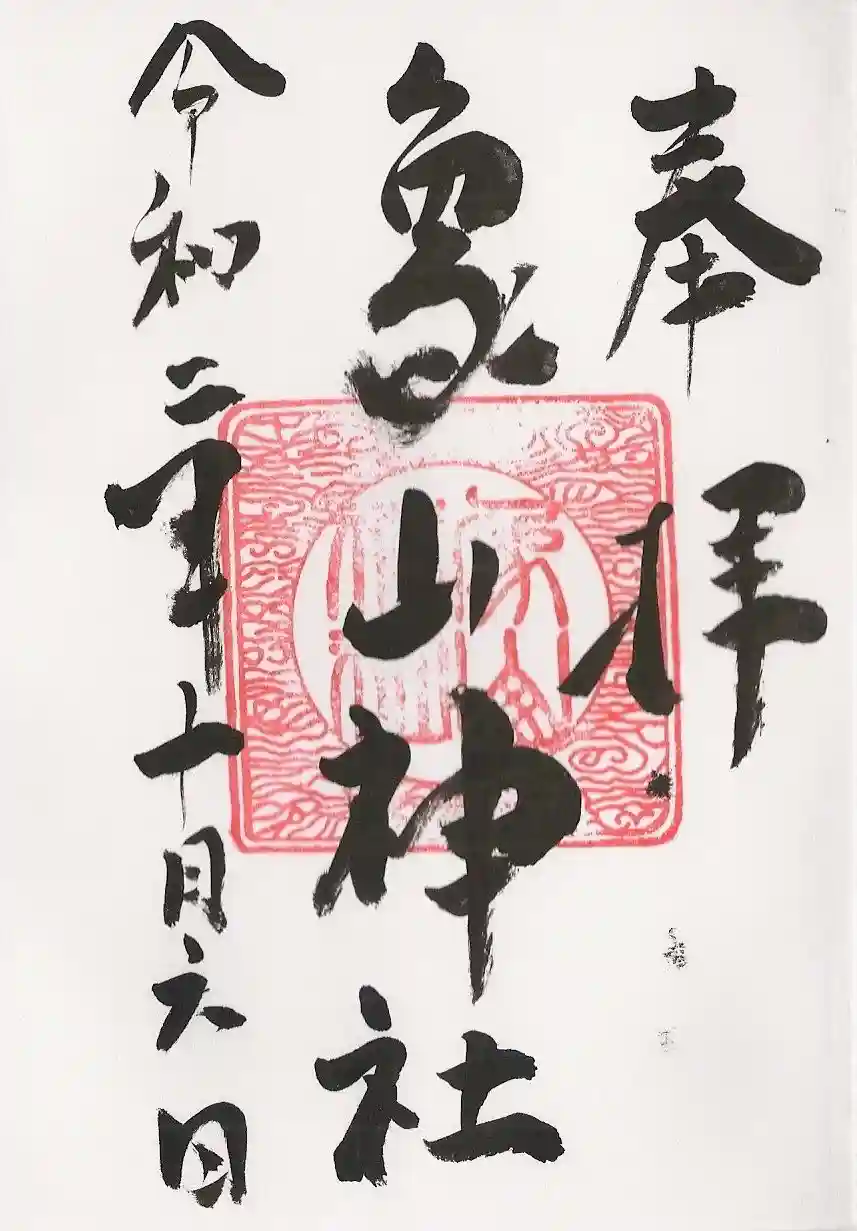 奉拝
象山神社
令和二年十月六日